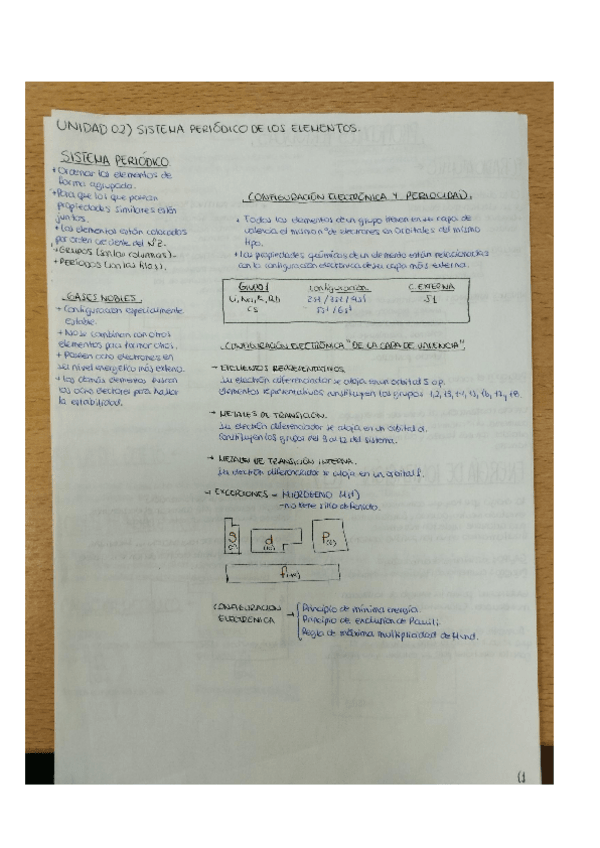 UNIDAD 02) SISTEMA PERIÓDICO DE LOS ELEMENTOS.
SISTEMA PERIÓDICO
+ Ordenar los elementos de
forma agrupada.
+ Para que los que posean
propiedades similares estén
juntos.
+ Los elementos están colocados
por orden creciente del Nº Z.
+ GRUPOS (son las columnas).
+ PERÍODOS (son las filas).
GASES NOBLES.
+ Configuración especialmente
estable.
+ No se combinan con otros
elementos para formar otros.
+ Poseen ocho electrones en
su nivel energético más externo.
+ Los demás elementos buscan
los ocho electrones para hallar
la estabilidad.
CONFIGURACIÓN ELECTRÓNICA Y PERIOCIDAD.
+ Todos los elementos de un grupo tienen en su capa de
valencia el mismo nº de electrones en orbitales del mismo
tipo.
+ Las propiedades químicas de un elemento están relacionadas
con la configuración electrónica de su capa más externa.
Grupo 1 Configuración C. EXTERNA
Li, Na, K, Rb 2s1 / 3s1 / 4s1 S1
Cs 5s1 / 6s1
CONFIGURACIÓN ELECTRÓNICA "DE LA CAPA DE VALENCIA",
→ ELEMENTOS REPRESENTATIVOS.
Su electrón diferenciador se aloja en un orbital s o p.
Elementos representativos constituyen los grupos 1, 2, 13, 14, 15, 16, 17, 18.
→ METALES DE TRANSICIÓN.
Su electrón diferenciador se aloja en un orbital d.
Constituyen los grupos del 3 al 12 del sistema.
→ METALES DE TRANSICIÓN INTERNA.
Su electrón diferenciador se aloja en un orbital f.
→ EXCEPCIONES = HIDRÓGENO (1s1)
- no tiene sitio definido.
S (2) d (10) P (6)
f (14)
CONFIGURACIÓN ELECTRÓNICA → Principio de mínima energía.
Principio de exclusión de Pauili.
Regla de máxima multiplicidad de Hund.
(1